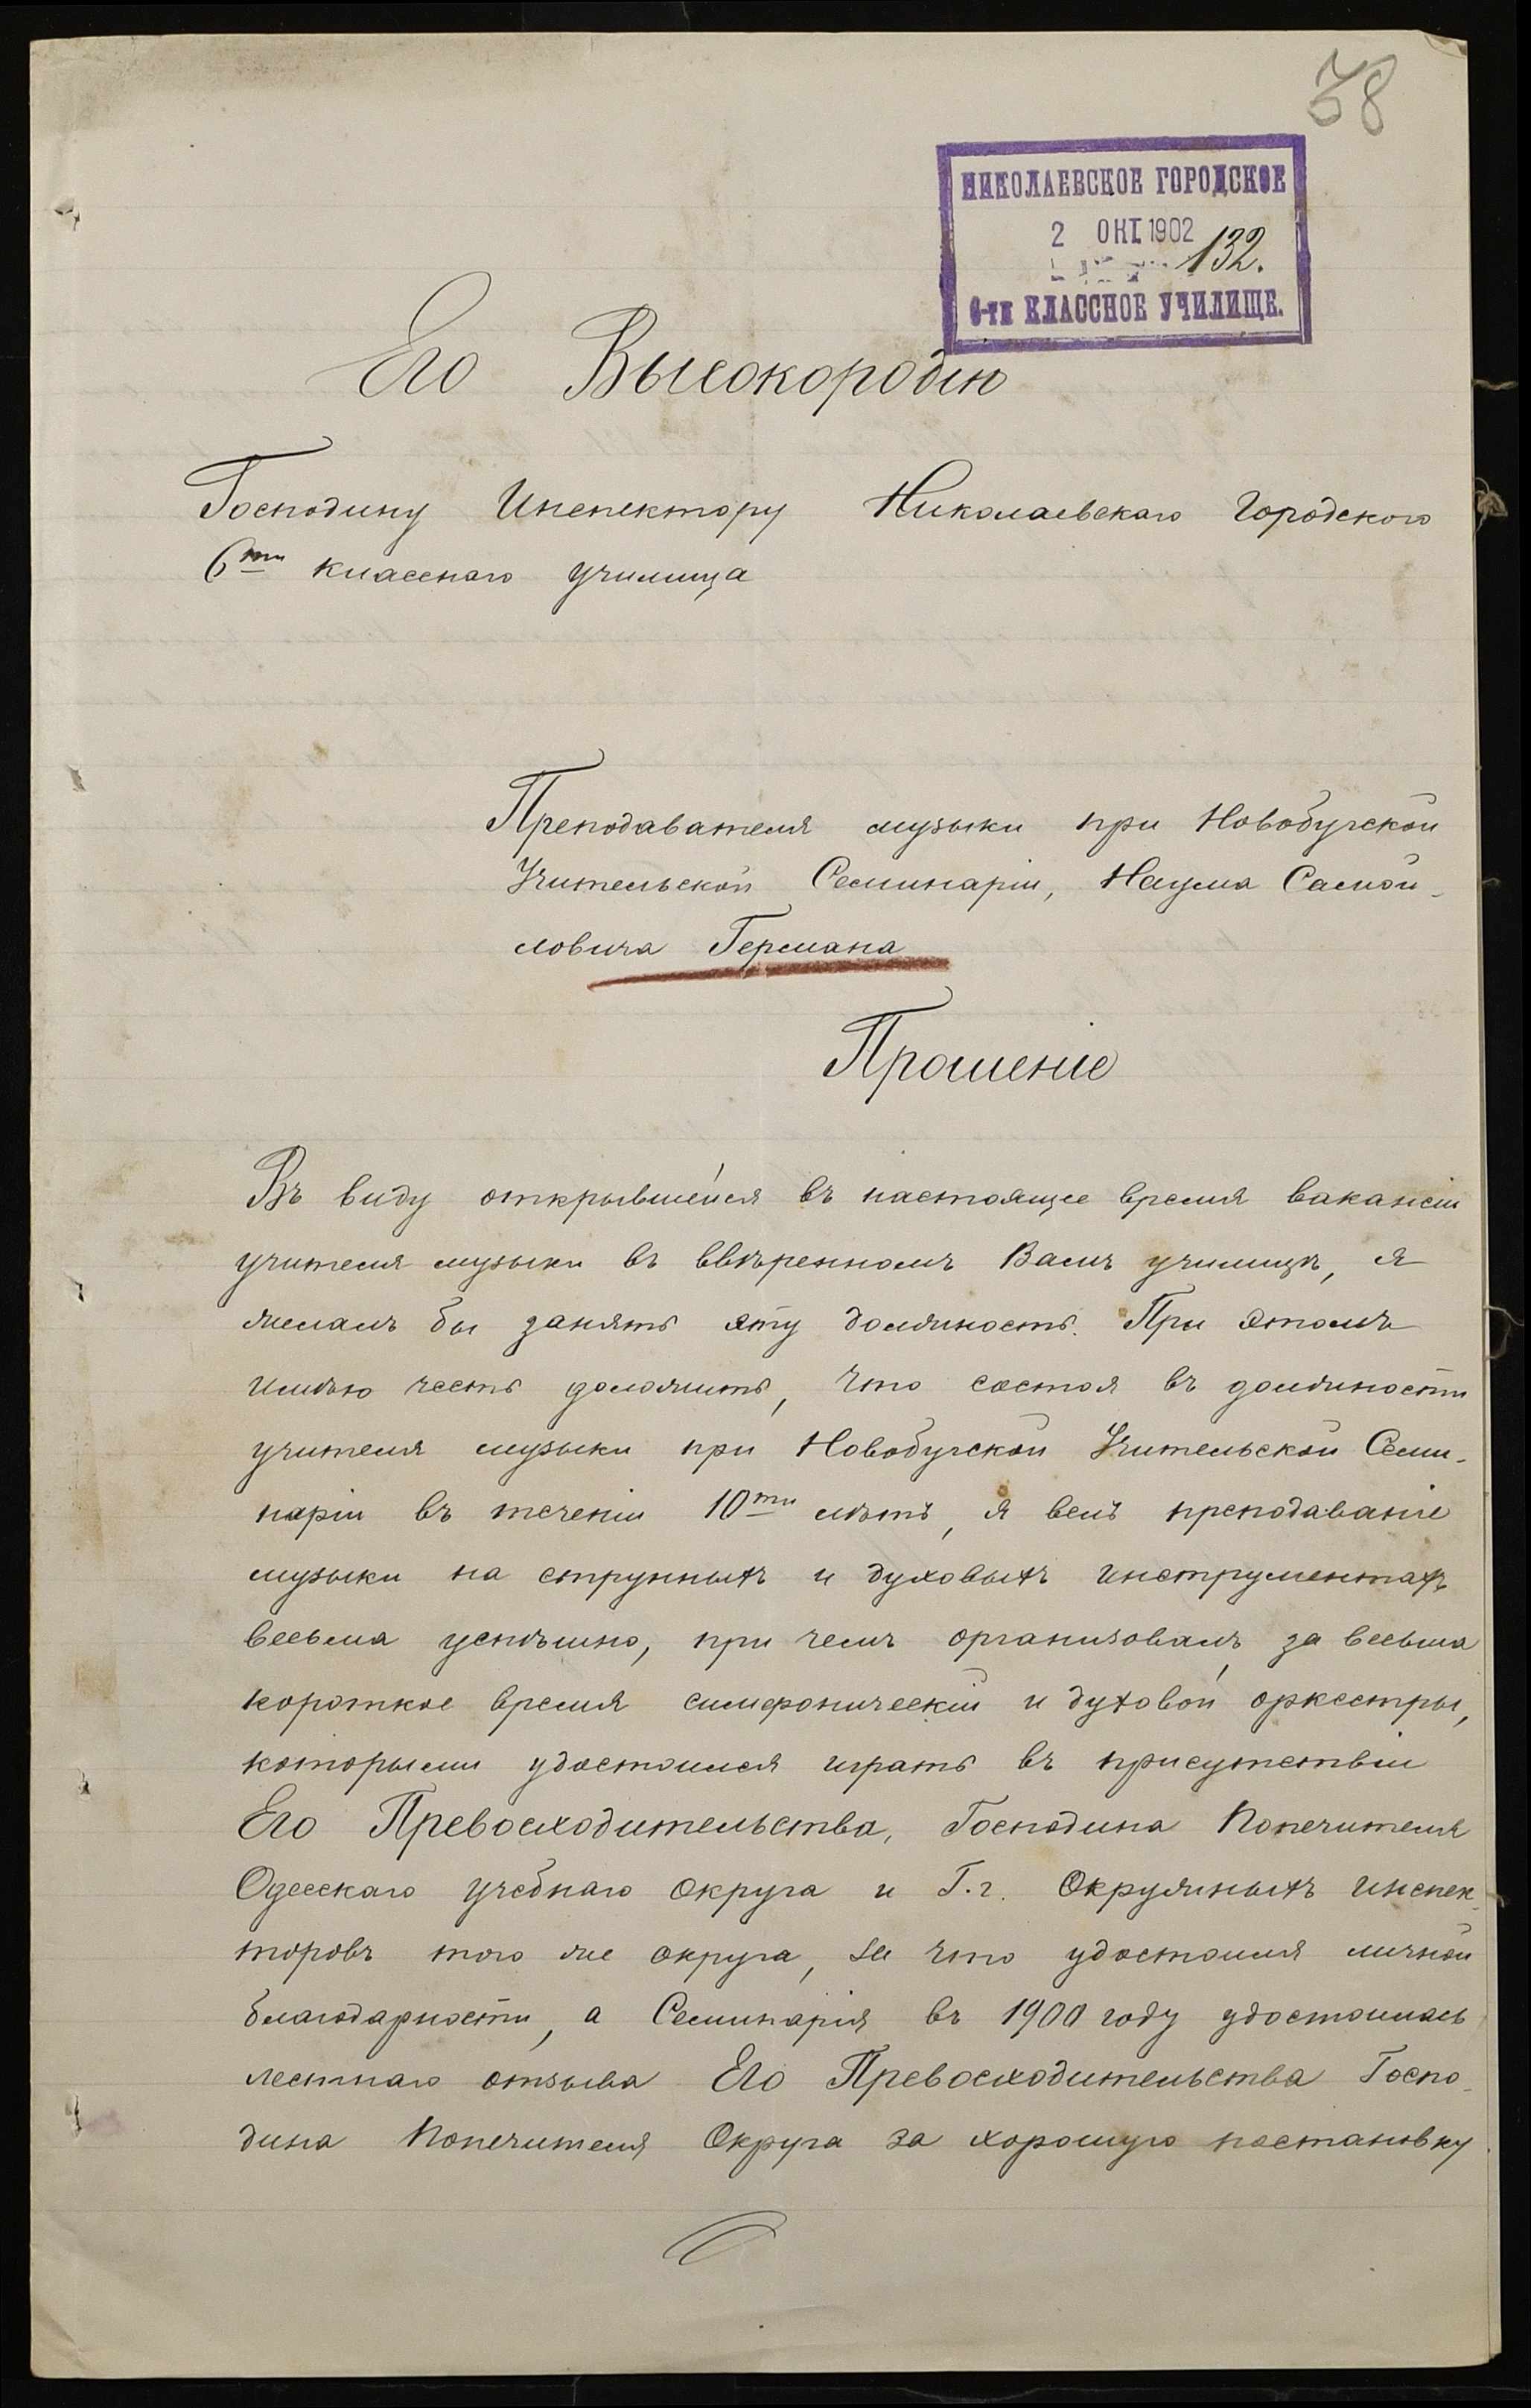 38
НИКОЛАЕВСКОЕ ГОРОДСКОЕ
2 ОКТ. 1902
132.
6-ти КЛАССНОЕ УЧИЛИЩЕ.
Его Высокородію
Господину Инспектору Николаевскаго Городского
6ти класснаго училища
Преподавателя музыки при Новобугской
Учительской Семинаріи, Наума Самой-
ловича Германа
Прошеніе
Въ виду открывшейся въ настоящее время вакансіи
учителя музыки въ ввѣренномъ Вамъ училищѣ, я
желалъ бы занять эту должность. При этомъ
имѣю честь доложить, что состоя въ должности
учителя музыки при Новобугской Учительской Семи-
наріи въ теченіи 10ти лѣтъ, я велъ преподаваніе
музыки на струнныхъ и духовыхъ инструментахъ
весьма успѣшно, при чемъ организовалъ за весьма
короткое время симфоническій и духовой оркестры,
которыми удостоился играть въ присутствіи
Его Превосходительства, Господина Попечителя
Одесскаго учебнаго Округа и Г.г. Окружныхъ инспек-
торовъ того же округа, за что удостоился личной
благодарности, а Семинарія въ 1900 году удостоилась
лестнаго отзыва Его Превосходительства Госпо-
дина Попечителя Округа за хорошую постановку